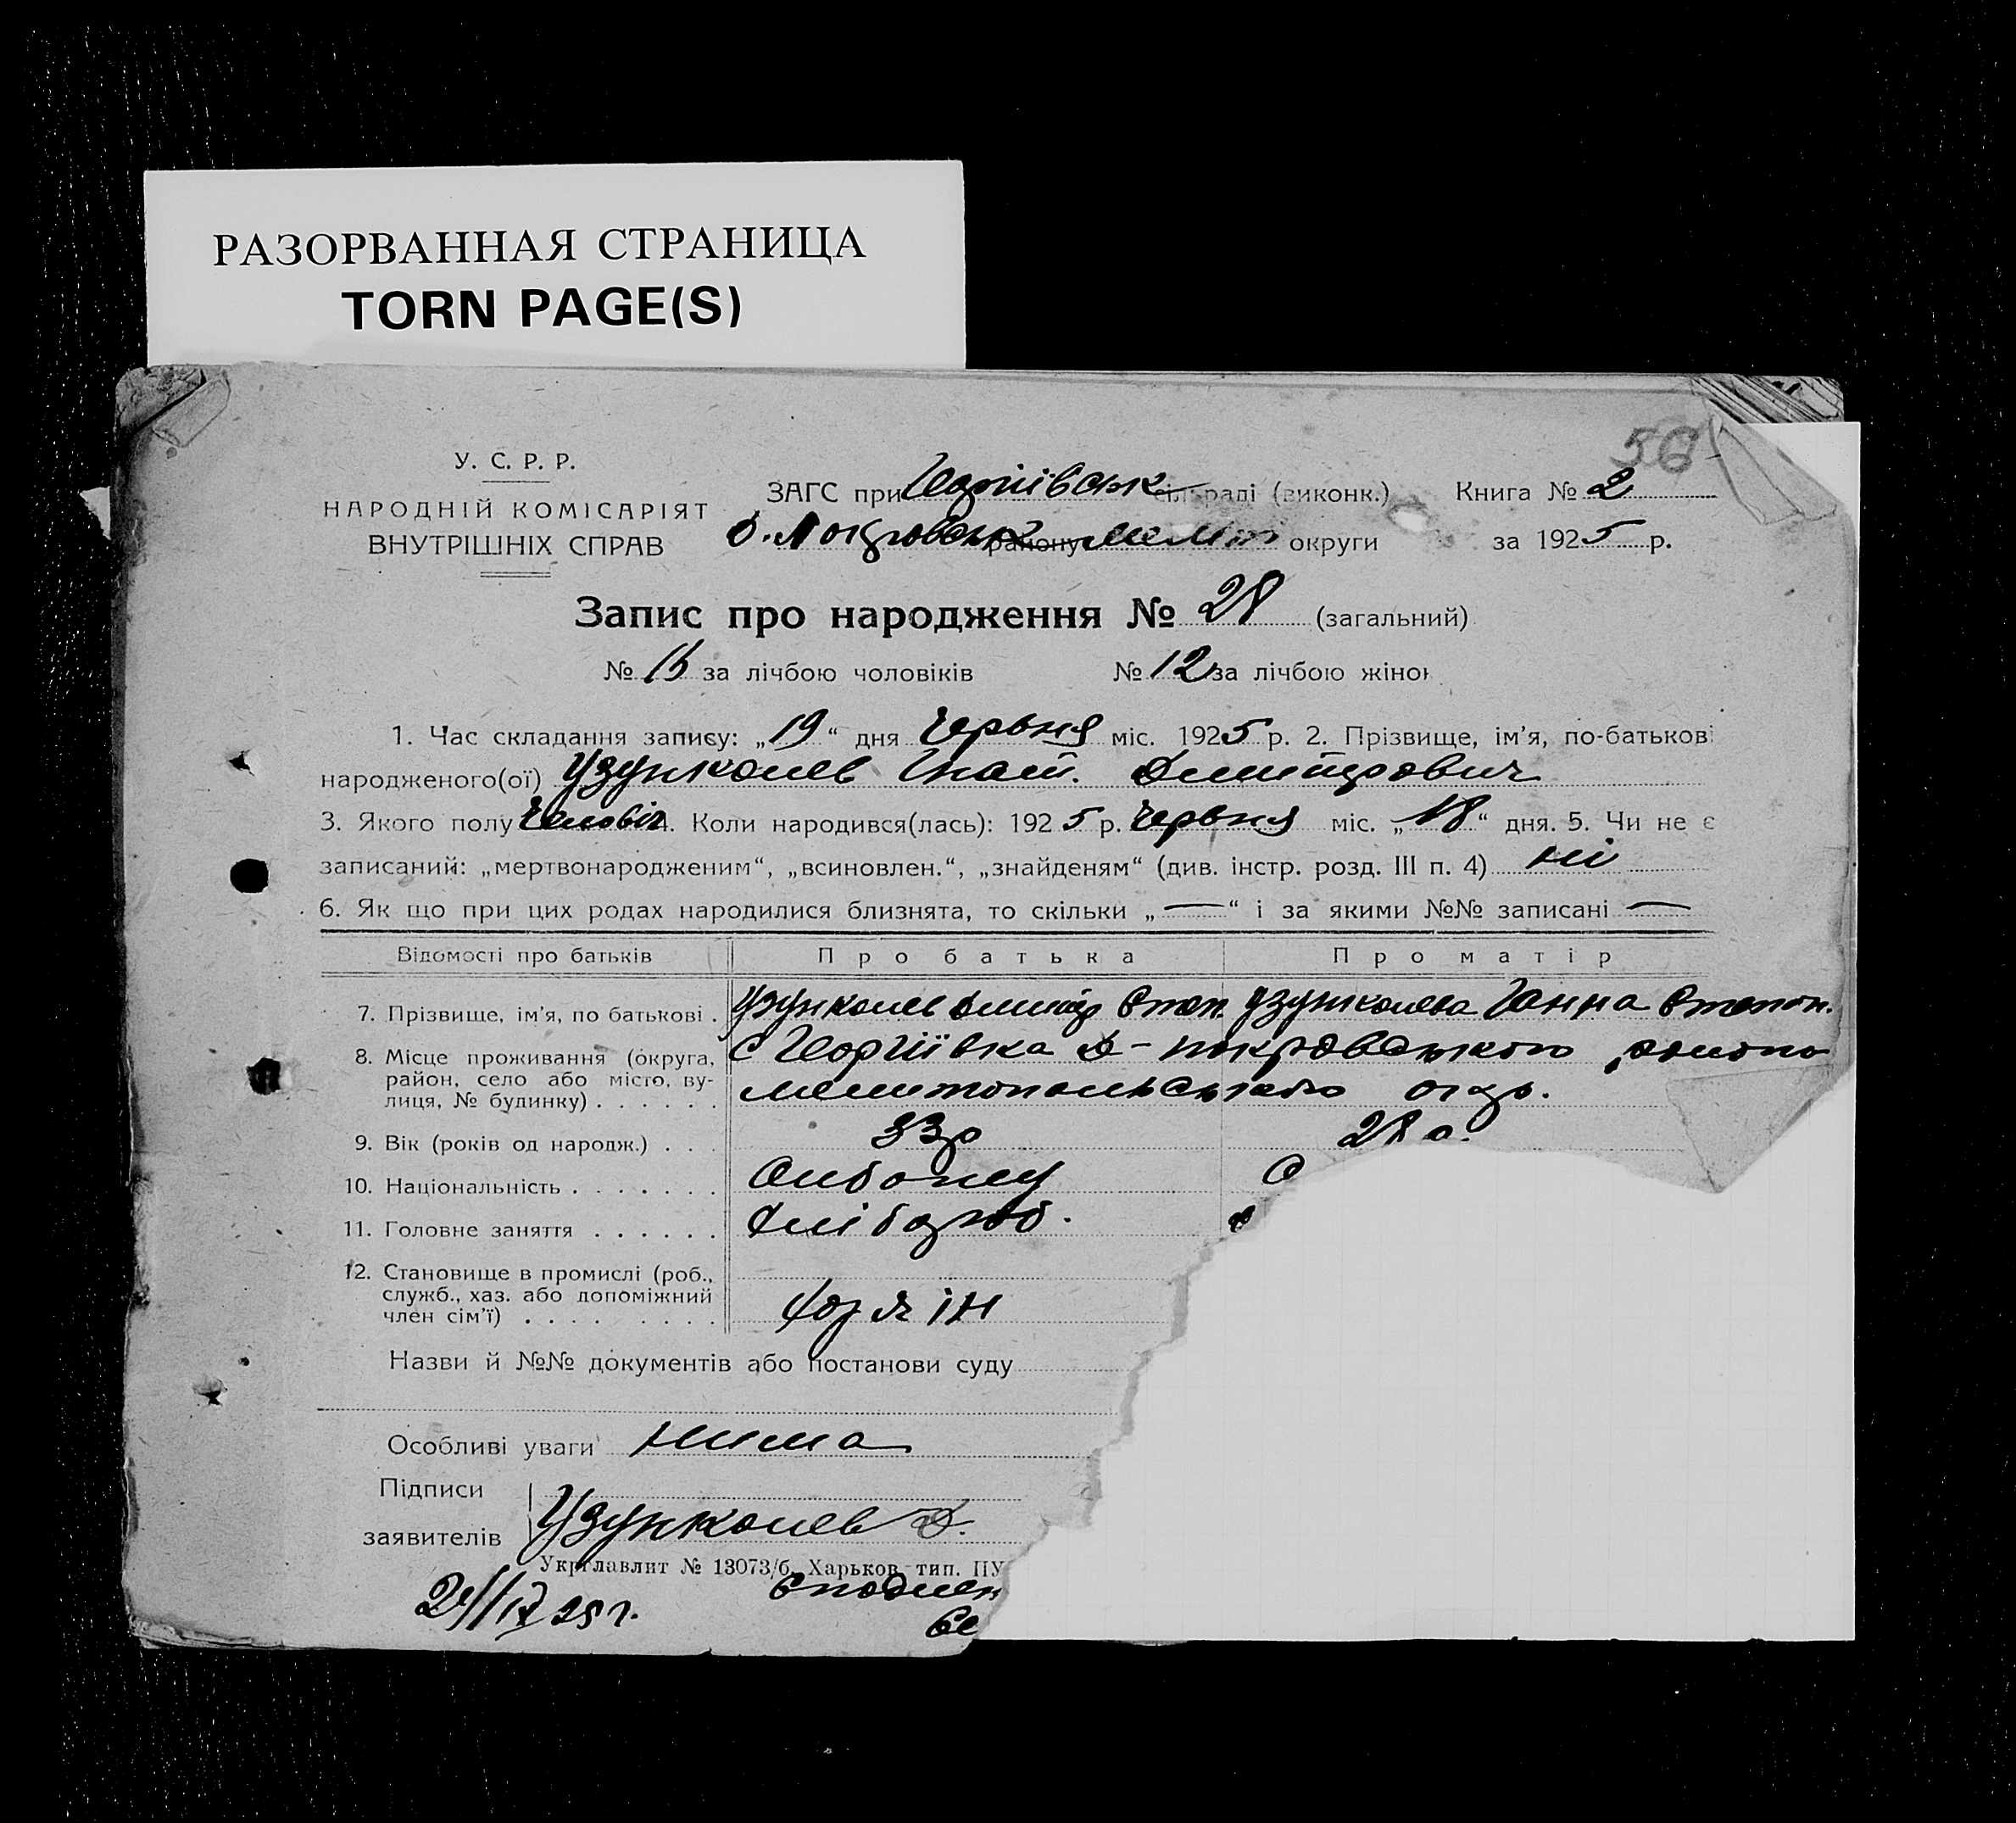 РАЗОРВАННАЯ СТРАНИЦА
TORN PAGE(S)
56
У. С. Р. Р.
НАРОДНІЙ КОМІСАРІЯТ
ВНУТРІШНІХ СПРАВ
ЗАГС при Георгіївськ сільраді (виконк.)
Книга № 2
Д. Покровськ району Меліт округи
за 1925 р.
Запис про народження № 28 (загальний)
№ 16 за лічбою чоловіків № 12 за лічбою жінок
1. Час складання запису: „19“ дня Червня міс. 1925 р. 2. Прізвище, ім’я, по-батькові
народженого(ої) Узунколев Гнат. Дмитрович
3. Якого полу Человіч 4. Коли народився(лась): 1925 р. Червня міс. „18“ дня. 5. Чи не є
записаний: „мертвонародженим“, „всиновлен.“, „знайденям“ (див. інстр. розд. III п. 4) ні
6. Як що при цих родах народилися близнята, то скільки „—“ і за якими №№ записані —
Відомості про батьків Про батька Про матір
7. Прізвище, ім’я, по батькові . Узунколев Дмитр Степ. Узунколева Ганна Степан.
8. Місце проживання (округа, район, село або місто, вулиця, № будинку) . . . . . . с Георгіївка Д-покровського району
Мелитопольського окр.
9. Вік (років од народж.) . . . 33р 28 р.
10. Національність . . . . . . .
11. Головне заняття . . . . . . Хлібороб.
12. Становище в промислі (роб.,
служб., хаз. або допоміжний
член сім’ї) . . . . . . . . Хозяїн
Назви й №№ документів або постанови суду
Особливі уваги нима
Підписи
заявителів Узунколев Д.
Укрглавлит № 13073/б. Харьков, тип. ПУ